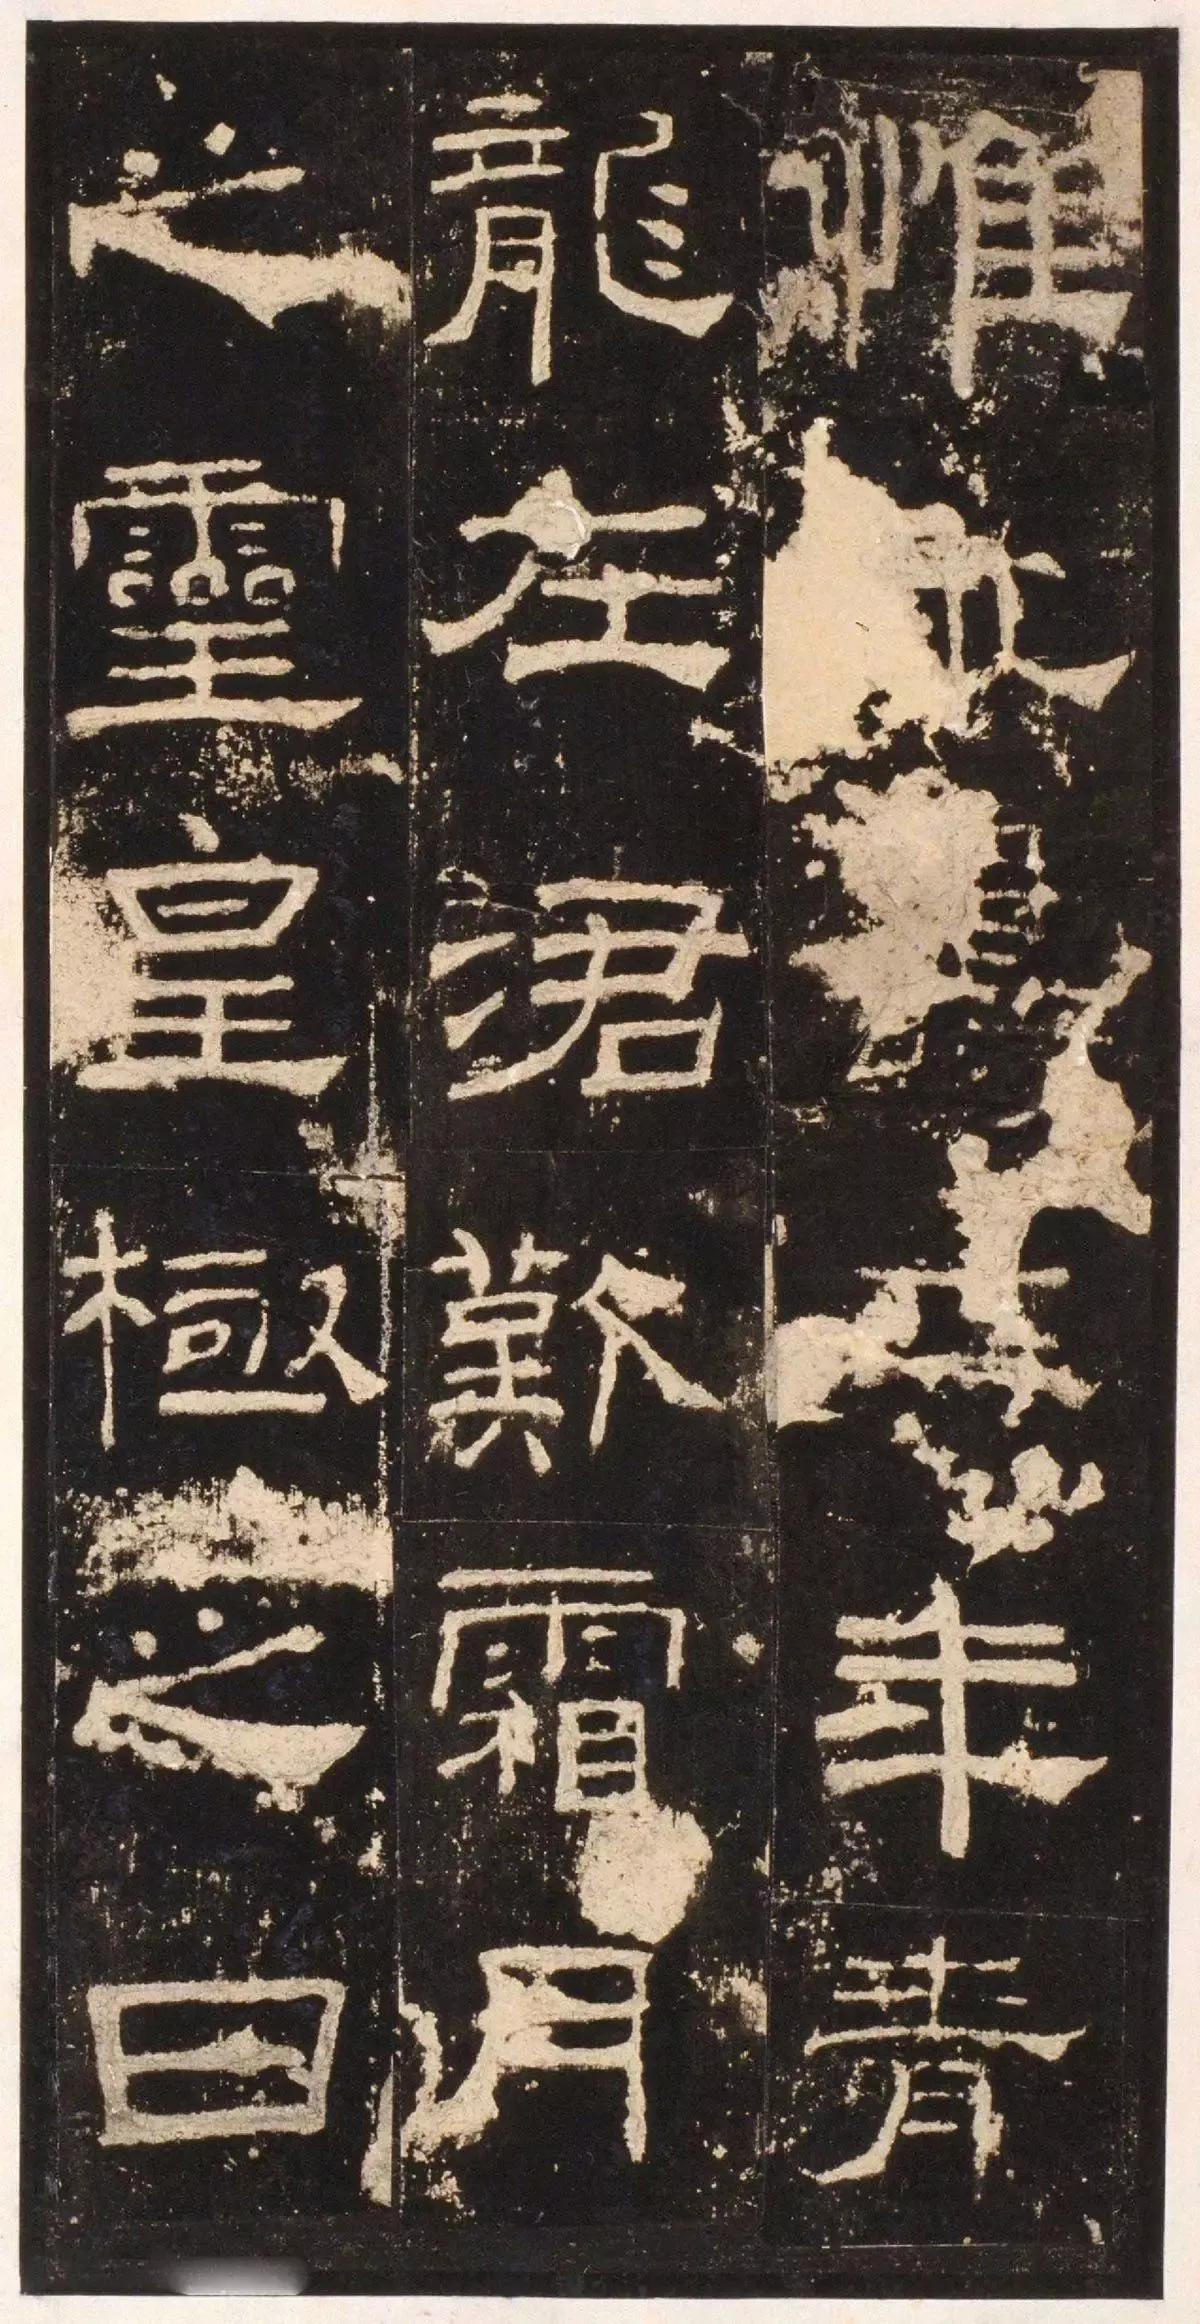 惟永壽二年青
龍在涒歎霜月
之靈皇極之日